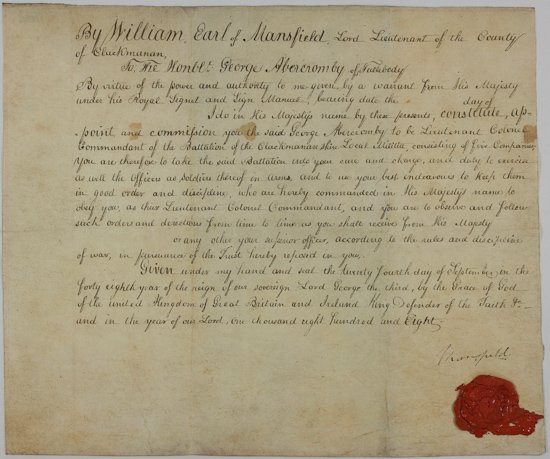 By William, Earl of Mansfield, Lord Lieutenant of the County
of Clackmanan,
To The Honble. George Abercromby of Tullebody
By virtue of the power and authority to me given, by a warrant from His Majesty
under his Royal Signet and Sign Manual, bearing date the day of
I do in His Majesty's name by these presents, constitute, ap-
point, and commission you the said George Abercromby to be Lieutenant Colonel
Commandant of the Battalion of the Clackmananshire Local Militia, consisting of five Companies
You are therefore to take the said Battalion into your care and charge, and duly to exercise
as well the Officers as Soldiers thereof in arms, and to use your best endeavours to keep them
in good order and discipline, who are hereby commanded in His Majesty's name to
obey you, as their Lieutenant Colonel Commandant, and you are to observe and follow
such orders and directions from time to time as you shall receive from His Majesty
or any other your superior officer, according to the rules and discipline
of war, in pursuance of the Trust hereby reposed in you.
Given under my hand and seal the twenty fourth day of September, in the
forty eighth year of the reign of our sovereign Lord George the third, by the Grace of God
of the united Kingdom of Great Britain and Ireland King Defender of the Faith &c
and in the year of our Lord, one thousand eight hundred and Eight
Mansfield